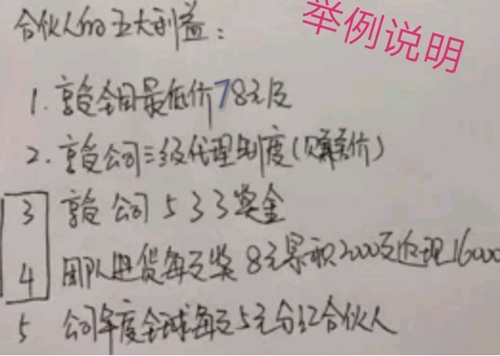 合伙人的五大利益：
举例说明
1. 享受全国最低价78元/支
2. 享受公司三级代理制度(赚差价)
3 享受公司533奖金
4 团队进货每支奖8元累积2000支返现16000
5 公司年度全球每支5元分红合伙人